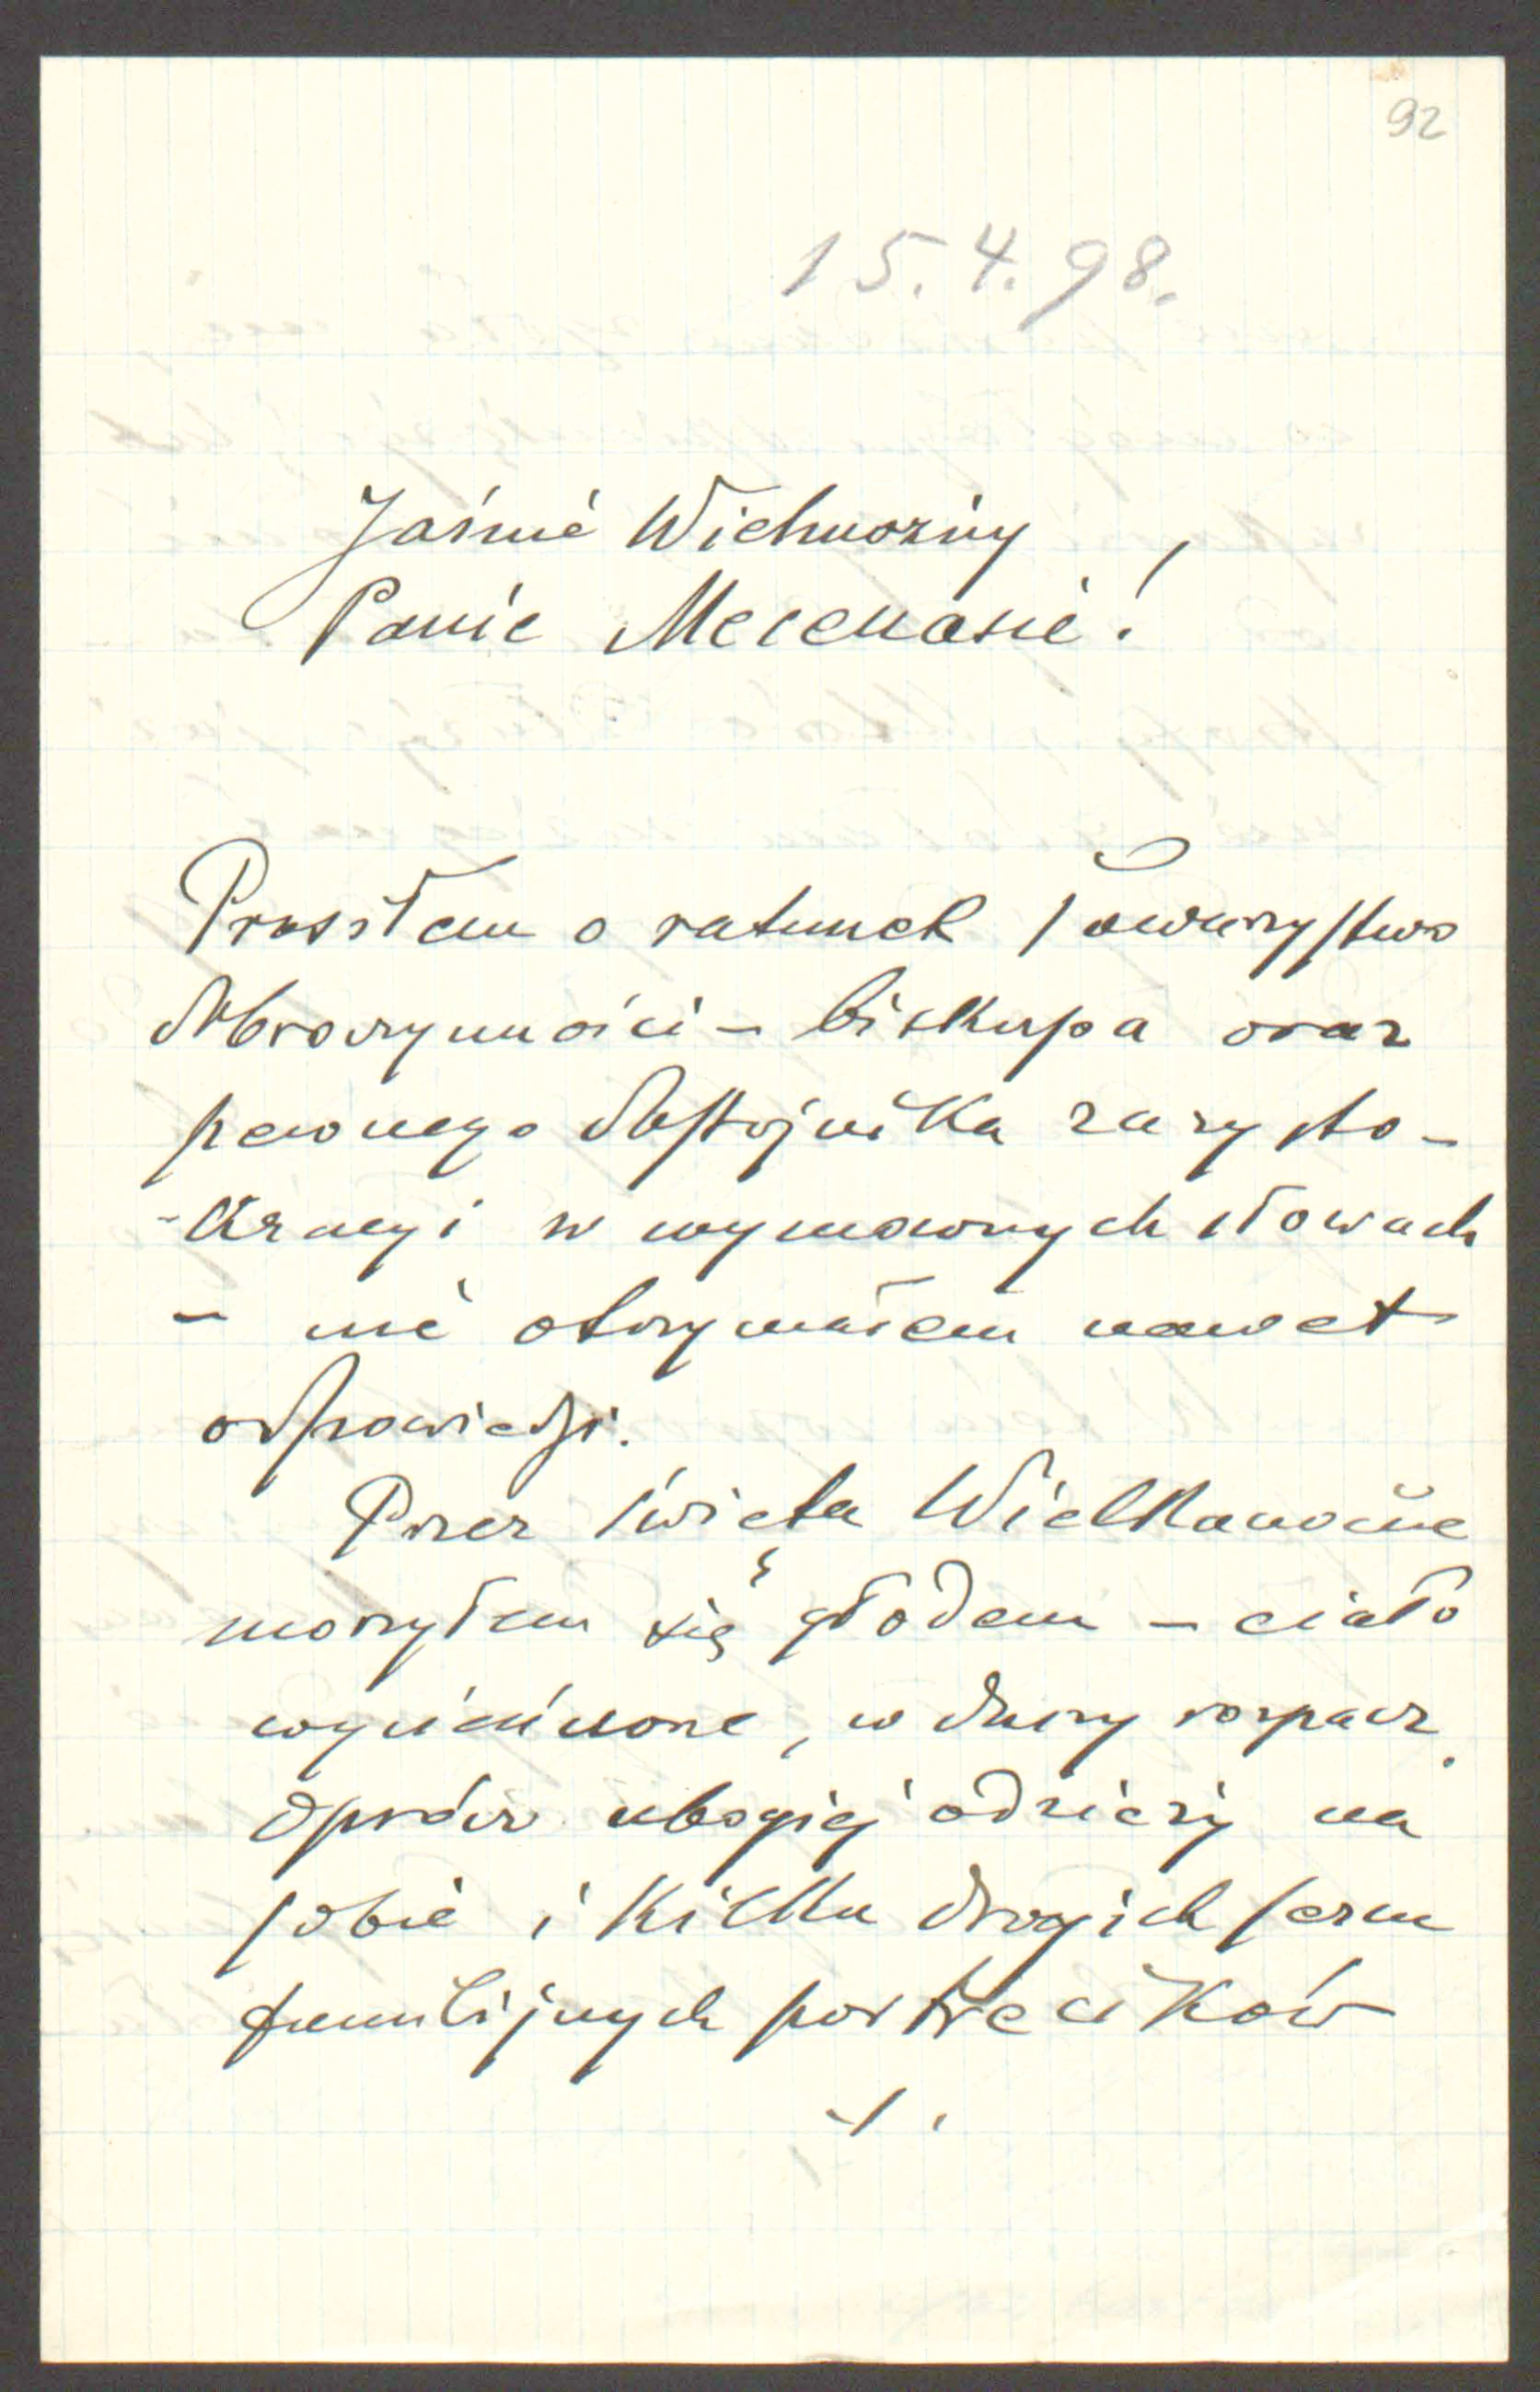 92
15.4.98.
Jaśnie Wielmożny
Panie Mecenasie!
Prosiłem o ratunek Towarzystwo
dobroczynności - biskupa oraz
pewnego dostojnika z arysto-
-kracyi w wymownych słowach
- nie otrzymałem nawet
odpowiedzi.
Przez święta Wielkanocne
morzyłem się głodem - ciało
wycieńczone, w duszy rozpacz.
Oprócz ubogiej odzieży na
sobie i kilku drogich sercu
familijnych portrecików
./.